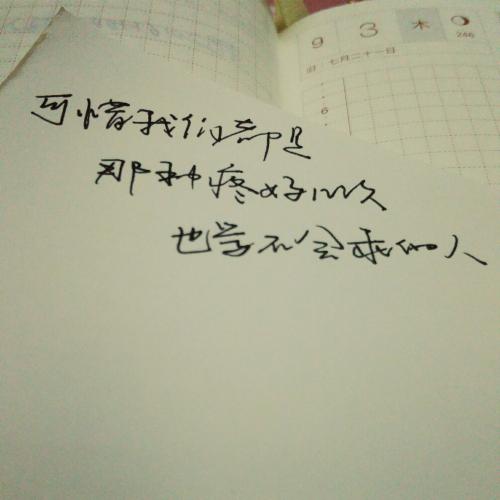 9 3 木
246
旧 七月二十一日
6
可惜我们都是
那种疼好几次
也学不会的人